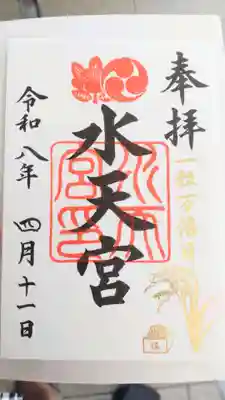 奉拝
一粒万倍日
水天宮
水天宮印
令和八年 四月十一日